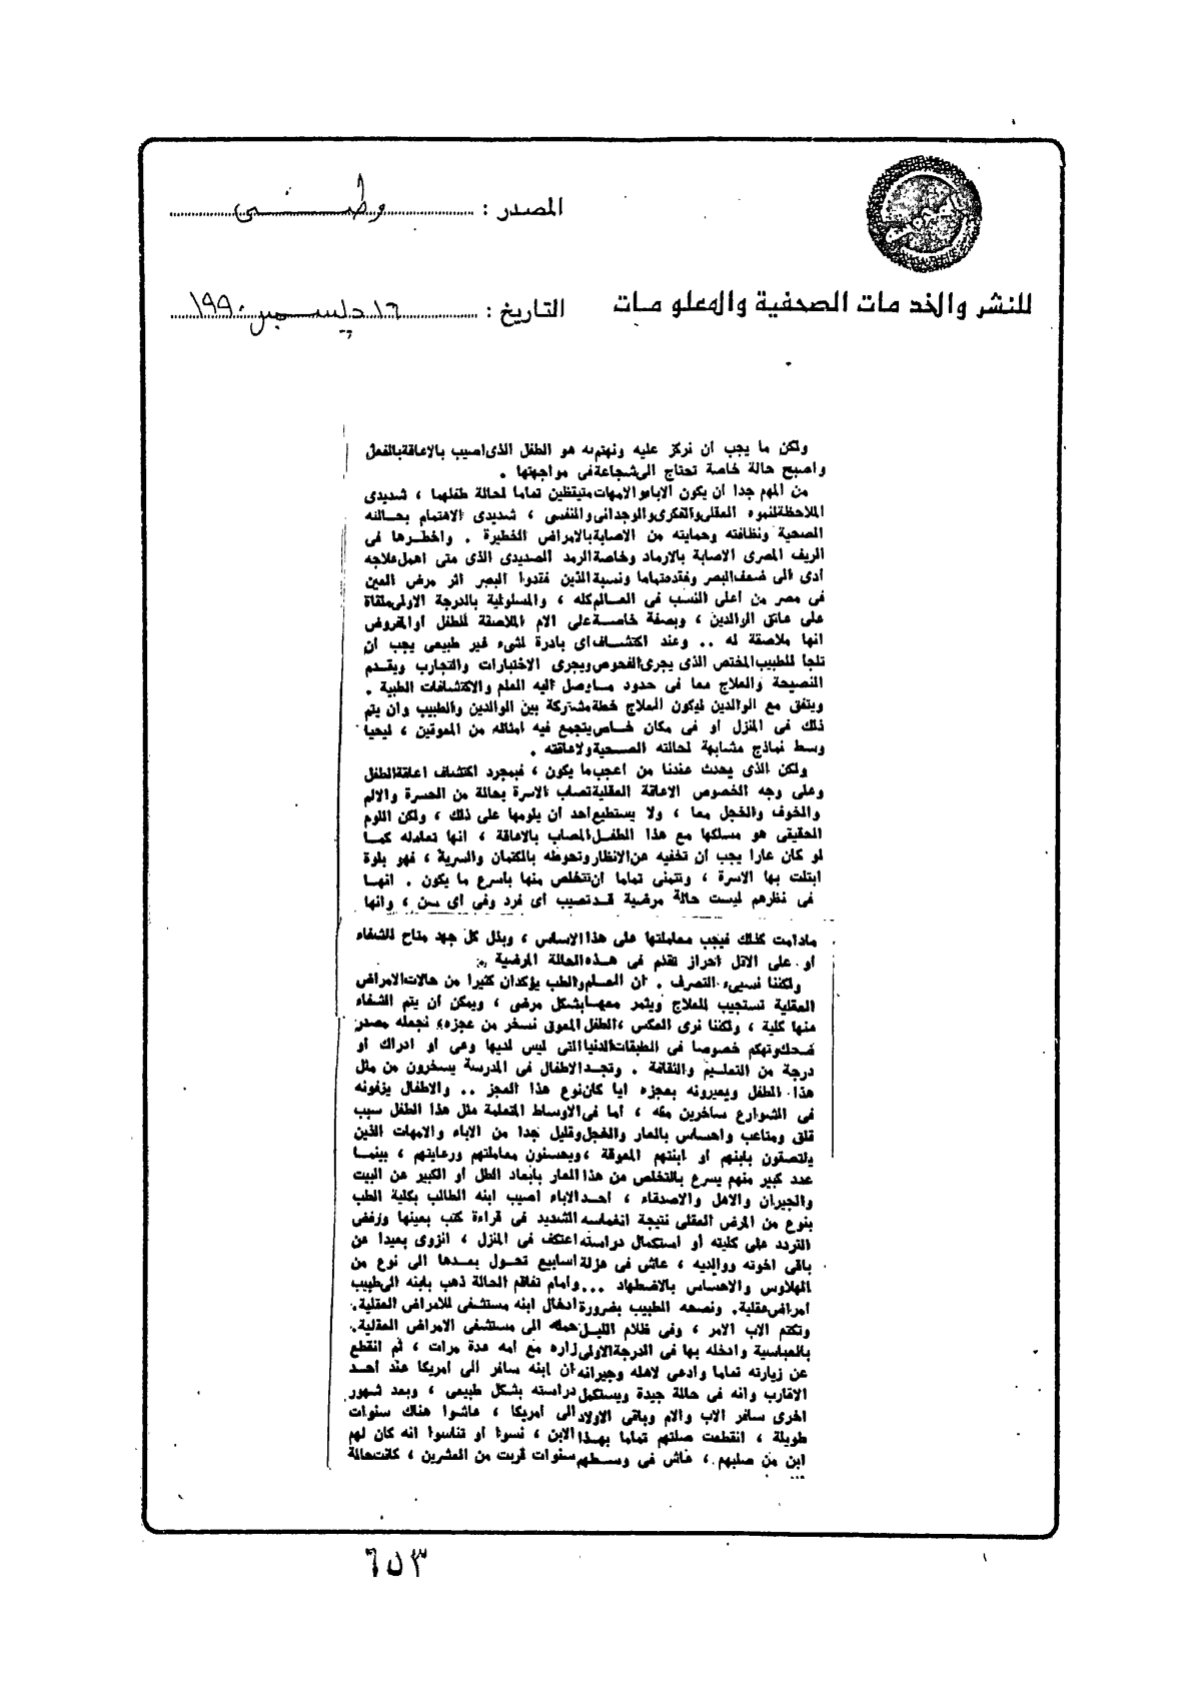 المصدر : وطنى
للنشر والخدمات الصحفية والمعلومات
التاريخ : ١٦ ديسمبر ١٩٩٠
ولكن ما يجب أن نركز عليه ونهتم به هو الطفل الذى اصيب بالاعاقة بالفعل
واصبح حالة خاصة تحتاج الى شجاعة فى مواجهتها .
من المهم جدا أن يكون الاباء والامهات متيقظين تماما لحالة طفلهما ، شديدى
الملاحظة لنموه العقلى والفكرى والوجدانى والنفسى ، شديدى الاهتمام بحالته
الصحية ونظافته وحمايته من الاصابة بالامراض الخطيرة . واخطرها فى
الريف المصرى الاصابة بالارماد وخاصة الرمد الصديدى الذى متى اهمل علاجه
أدى الى ضعف البصر وفقده تماما ونسبة الذين فقدوا البصر اثر مرض العين
فى مصر من أعلى النسب فى العالم كله ، والمسئولية بالدرجة الاولى ملقاة
على عاتق الوالدين ، وبصفة خاصة على الام الملاصقة للطفل أو المفروض
انها ملاصقة له .. وعند اكتشاف اى بادرة لشىء غير طبيعى يجب أن
تلجا للطبيب المختص الذى يجرى الفحوص ويجرى الاختبارات والتجارب ويقدم
النصيحة والعلاج معا فى حدود ما وصل اليه العلم والاكتشافات الطبية .
ويتفق مع الوالدين ليكون العلاج خطة مشتركة بين الوالدين والطبيب وان يتم
ذلك فى المنزل او فى مكان خاص يتجمع فيه امثاله من المعوقين ، ليحيا
وسط نماذج مشابهة لحالته الصحية ولاعاقته .
ولكن الذى يحدث عندنا من اعجب ما يكون ، فبمجرد اكتشاف اعاقة الطفل
وعلى وجه الخصوص الاعاقة العقلية تصاب الاسرة بحالة من الحسرة والالم
والخوف والخجل معا ، ولا يستطيع احد ان يلومها على ذلك ، ولكن اللوم
الحقيقى هو مسلكها مع هذا الطفل المصاب بالاعاقة ، انها تعامله كما
لو كان عارا يجب أن تخفيه عن الانظار وتحوطه بالكتمان والسرية ، فهو بلوة
ابتلت بها الاسرة ، وتتمنى تماما ان تتخلص منها باسرع ما يكون . انها
فى نظرهم ليست حالة مرضية قد تصيب أى فرد وفى أى سن ، وانها
مادامت كذلك فيجب معاملتها على هذا الاساس ، وبذل كل جهد متاح للشفاء
او على الاقل احراز تقدم فى هذه الحالة المرضية .
ولكننا نسىء التصرف . ان العلم والطب يؤكدان كثيرا من حالات الامراض
العقلية تستجيب للعلاج ويثمر معها بشكل مرضى ، ويمكن أن يتم الشفاء
منها كلية ، ولكننا نرى العكس ، الطفل المعوق نسخر من عجزه ، نجعله مصدر
ضحك وتهكم خصوصا فى الطبقات الدنيا التى ليس لديها وعى أو ادراك أو
درجة من التعليم والثقافة . وتجد الاطفال فى المدرسة يسخرون من مثل
هذا الطفل ويعيرونه بعجزه ايا كان نوع هذا العجز .. والاطفال يزفونه
فى الشوارع ساخرين منه ، أما فى الاوساط المتعلمة مثل هذا الطفل سبب
قلق ومتاعب واحساس بالعار والخجل وقليل جدا من الاباء والامهات الذين
يلتصقون بابنهم او ابنتهم المعوقة ، ويحسنون معاملتهم ورعايتهم ، بينما
عدد كبير منهم يسرع بالتخلص من هذا العار بابعاد الطفل او الكبير عن البيت
والجيران والاهل والاصدقاء ، احد الاباء اصيب ابنه الطالب بكلية الطب
بنوع من المرض العقلى نتيجة انغماسه الشديد فى قراءة كتب بعينها ورفض
التردد على كليته أو استكمال دراسته اعتكف فى المنزل ، انزوى بعيدا عن
باقى اخوته ووالديه ، عاش فى عزلة اسابيع تحول بعدها الى نوع من
الهلاوس والاحساس بالاضطهاد ... وامام تفاقم الحالة ذهب بابنه الى طبيب
امراض عقلية . ونصحه الطبيب بضرورة ادخال ابنه مستشفى للامراض العقلية .
وتكتم الاب الامر ، وفى ظلام الليل حمله الى مستشفى الامراض العقلية .
بالعباسية وادخله بها فى الدرجة الاولى زاره مع امه عدة مرات ، ثم انقطع
عن زيارته تماما وادعى لاهله وجيرانه ان ابنه سافر الى امريكا عند احد
الاقارب وانه فى حالة جيدة ويستكمل دراسته بشكل طبيعى ، وبعد شهور
اخرى سافر الاب والام وباقى الاولاد الى امريكا ، عاشوا هناك سنوات
طويلة ، انقطعت صلتهم تماما بهذا الابن ، نسوا او تناسوا انه كان لهم
ابن من صلبهم ، عاش فى وسطهم سنوات قربت من العشرين ، كانت حالة
٦٥٣